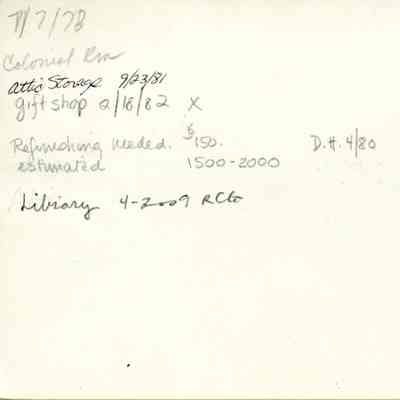 7/7/78
Colonial Rm
Attic Storage 9/23/81
gift shop 2/16/82 X
Refinishing needed. $150. D.H. 4/80
estimated 1500-2000
Library 4-2009